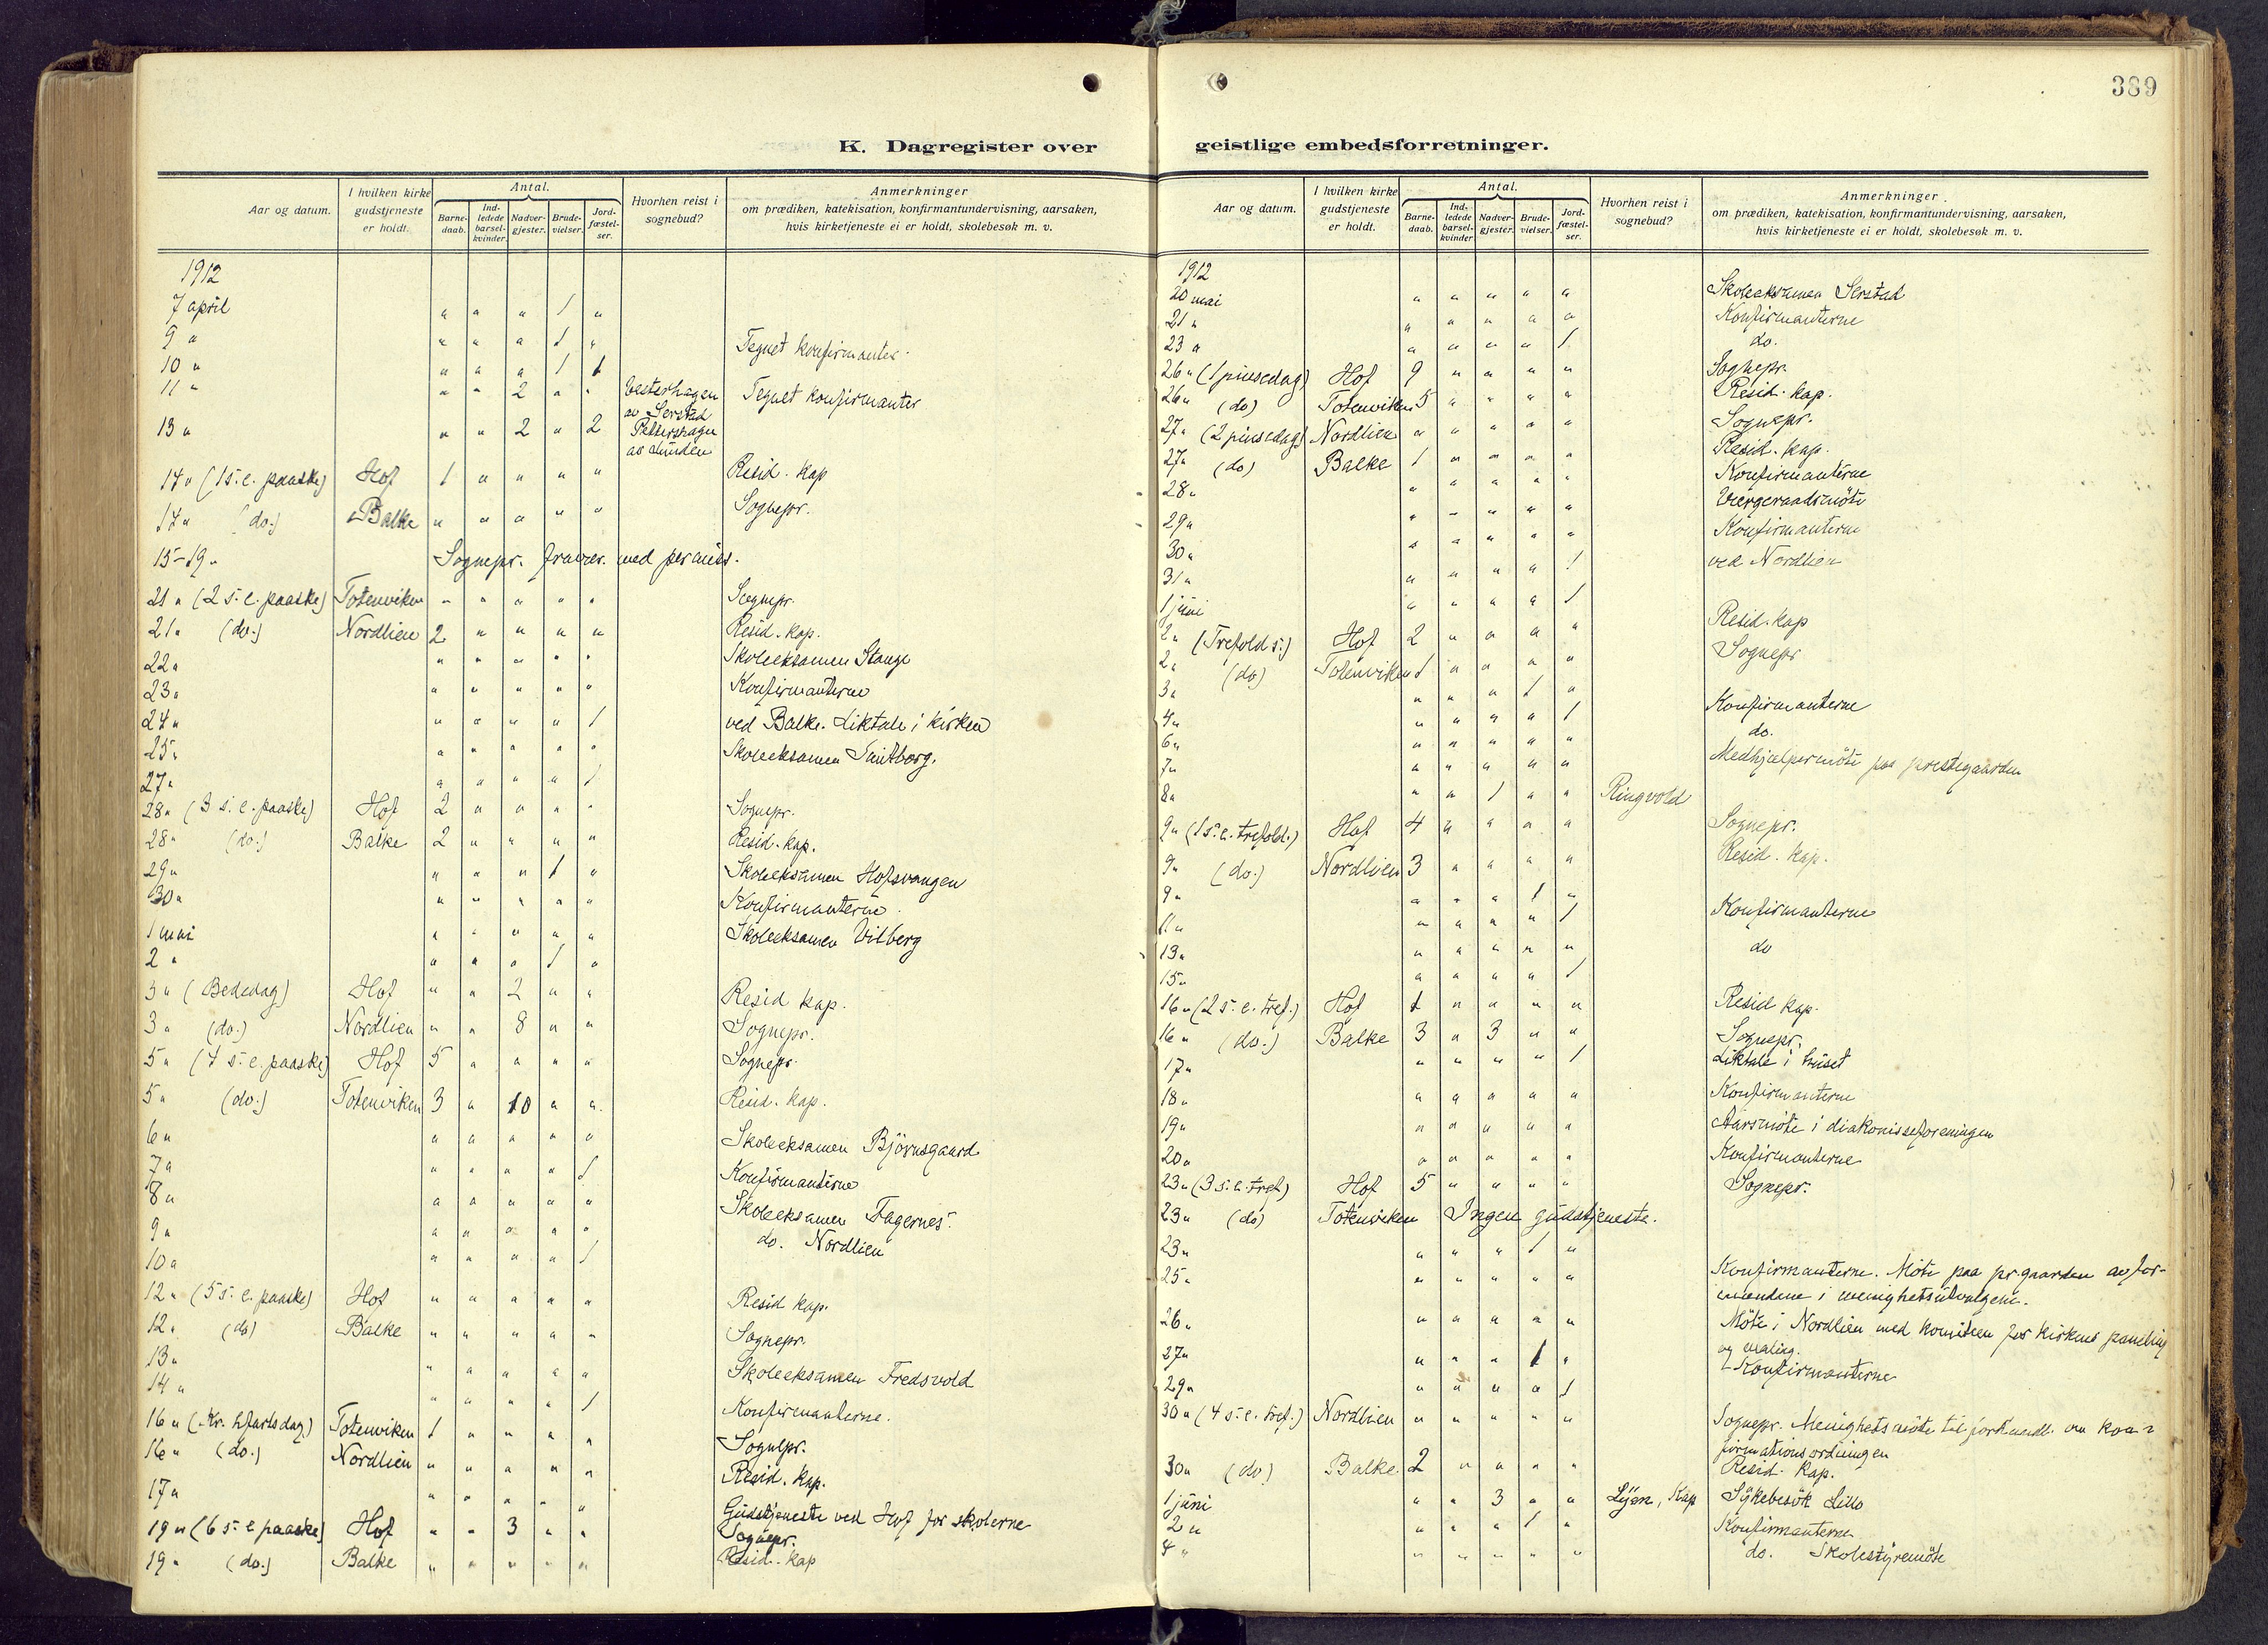 389
K. Dagregister over geistlige embedsforretninger.
Aar og datum. I hvilken kirke gudstjeneste er holdt. Antal. Barne-daab. Ind-ledede barsel-kvinder. Nadver-gjester. Brude-vielser. Jord-fæstel-ser. Hvorhen reist i sognebud? Anmerkninger om prædiken, katekisation, konfirmantundervisning, aarsaken, hvis kirketjeneste ei er holdt, skolebesøk m. v.
1912
7 april " " " 1 "
9 " " " " 1 " Tegnet konfirmanter.
10 " " " " 1 1
11 " " " 2 " " Vesterhagen av Serstad Tegnet konfirmanter
13 " " " 2 " 2 Pettershagen av Lunden
14 " (1 s. e. paaske) Hof 1 " " " " Resid. kap
14 " (do.) Balke " " " " " Sognepr.
15-19 " Sognepr. fravær. med permiss.
21 " (2 s. e. paaske) Totenviken " " " " " Sognepr.
21 " (do.) Nordlien 2 " " " " Resid. kap.
22 " " " " " " Skoleeksamen Stange
23 " " " " " " Konfirmanterne
24 " " " " " 1 ved Balke. Liktale i kirken
25 " " " " " " Skoleeksamen
27 " " " " " 1
28 " (3 s. e. paaske) Hof 2 " " " " Sognepr.
28 " (do.) Balke 2 " " " " Resid. kap.
29 " " " " 1 " Skoleeksamen Hofsvangen
30 " " " " " " Konfirmanterne.
1 mai " " " " " Skoleeksamen Vilberg
2 " " " " 1 "
3 " (Bededag) Hof " " 2 " " Resid kap.
3 " (do.) Nordlien " " 8 " " Sognepr.
5 " (4 s. e. paaske) Hof 5 " " " " Sognepr.
5 " (do.) Totenviken 3 " 10 " " Resid. kap.
6 " " " " " " Skoleeksamen Björnsgaard
7 " " " " " 1 Konfirmanterne
8 " " " " " " Skoleeksamen Fagernes
9 " " " " " " do. Nordlien
10 " " " " " 1
12 " (5 s. e. paaske) Hof " " " " " Resid kap.
12 " (do) Balke " " " " " Sognepr.
13 " " " " " " Skoleeksamen Fredsvold
14 " " " " " 1 Konfirmanterne.
16 " (Kr. h.fartsdag) Totenviken 1 " " " " Sognepr.
16 " (do.) Nordlien " " " " " Resid. kap.
17 " " " " " " Gudstjeneste ved Hof for skolerne
19 " (6 s. e. paaske) Hof " " 3 " " Sognepr.
19 " (do.) Balke " " " " " Resid. kap
Aar og datum. I hvilken kirke gudstjeneste er holdt. Antal. Barne-daab. Ind-ledede barsel-kvinder Nadver-gjester. Brude-vielser. Jord-fæstel-ser. Hvorhen reist i sognebud? Anmerkninger om prædiken, katekisation, konfirmantundervisning, aarsaken, hvis kirketjeneste ei er holdt, skolebesøk m. v.
1912
20 mai " " " " " Skoleeksamen Serstad
21 " " " " " " Konfirmanterne
23 " " " " " 1 do.
26 " (1 pinsedag) Hof 9 " " " " Sognepr.
26 " (do) Totenviken 5 " " " " Resid. kap.
27 " (2 pinsedag) Nordlien " " " " " Sognepr.
27 " (do) Balke 1 " " " " Resid. kap.
28 " " " " " " Konfirmanterne
29 " " " " " " Vergeraadsmöte
30 " " " " " " Konfirmanterne
31 " " " " " 1 ved Nordlien
1 juni " " " " 1
2 " (Trefold s.) Hof 2 " " " " Resid. kap
2 " (do) Totenviken 1 " " " " Sognepr
3 " " " " 1 "
4 " " " " " 1 Konfirmanterne
6 " " " " " " do.
7 " " " " " " Medhjælpermöte paa prestegaarden
8 " " " 1 " " Ringvold
9 " (1 s. e. trefold.) Hof 4 " " " " Sognepr.
9 " (do.) Nordlien 3 " " " " Resid. kap.
9 " " " " 1 "
11 " " " " " 1 Konfirmanterne
13 " " " " " " do
15 " " " " " 1
16 " (2 s. e. tref.) Hof 1 " " " " Resid kap.
16 " (do.) Balke 3 " 3 " " Sognepr.
17 " " " " " 1 Liktale i huset
18 " " " " " " Konfirmanterne
19 " " " " " " Aarsmöte i diakonisseforeningen
20 " " " " " " Konfirmanterne
23 " (3 s. e. tref) Hof 5 " " " " Sognepr.
23 " (do) Totenviken Ingen gudstjeneste.
23 " " " " 1 "
25 " " " " " " Konfirmanterne. Möte paa pr.gaarden av for-
mændene i menighetsutvalgene.
26 " " " " " " Möte i Nordlien med komiteen for kirkens paneling
og maling.
27 " " " " 1 " Konfirmanterne
29 " " " " " 1
30 " (4 s. e. tref.) Nordlien " " " " " Sognepr. Menighetsmöte til forhandl. om kon-
firmationsordningen
30 " (do) Balke 2 " " " " Resid. kap.
1 juni " " 3 " " Sykebesök Lillo
2 " " " " 1 " Konfirmanterne
4 " " " " " " do. Skolestyremöte